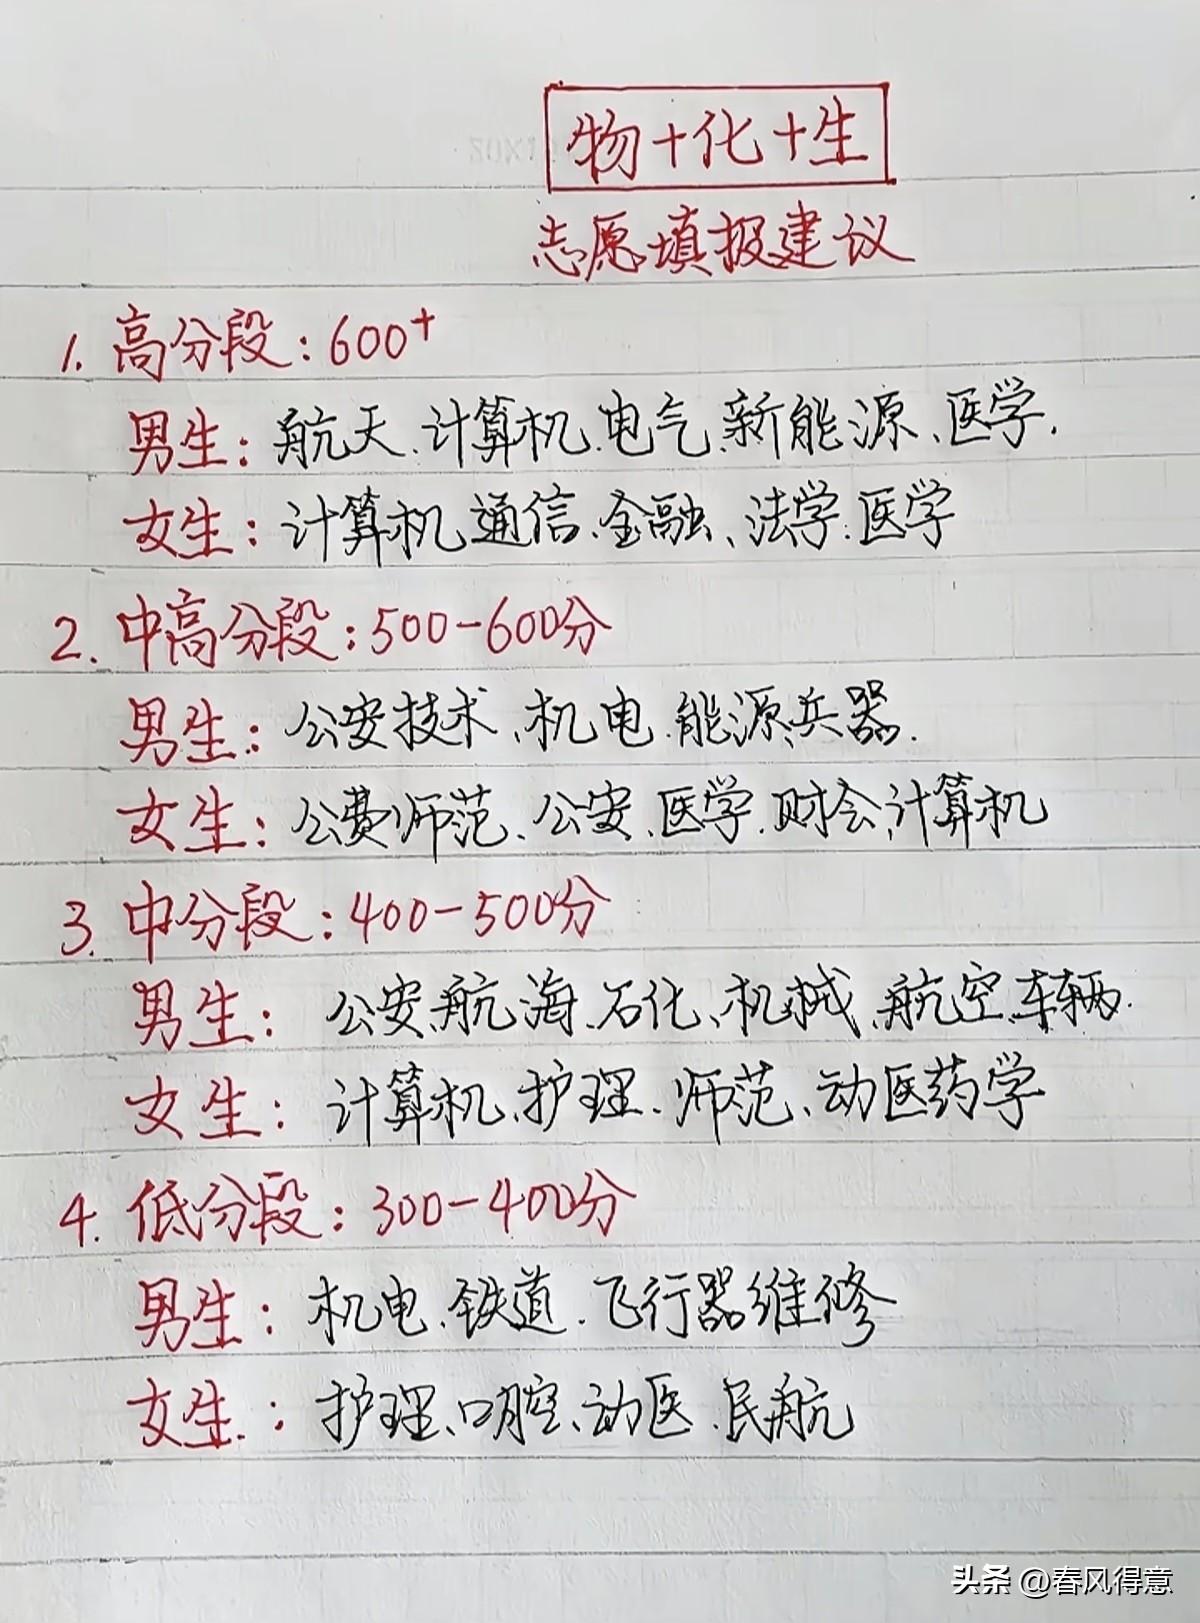 物+化+生
志愿填报建议
1. 高分段:600+
男生:航天、计算机、电气、新能源、医学.
女生:计算机、通信、金融、法学、医学
2. 中高分段:500-600分
男生:公安技术、机电、能源、兵器.
女生:公费师范、公安、医学、财会、计算机
3. 中分段:400-500分
男生:公安、航海、石化、机械、航空、车辆.
女生:计算机、护理、师范、动医药学
4. 低分段:300-400分
男生:机电、铁道、飞行器维修
女生.:护理、口腔、动医、民航
头条 @春风得意